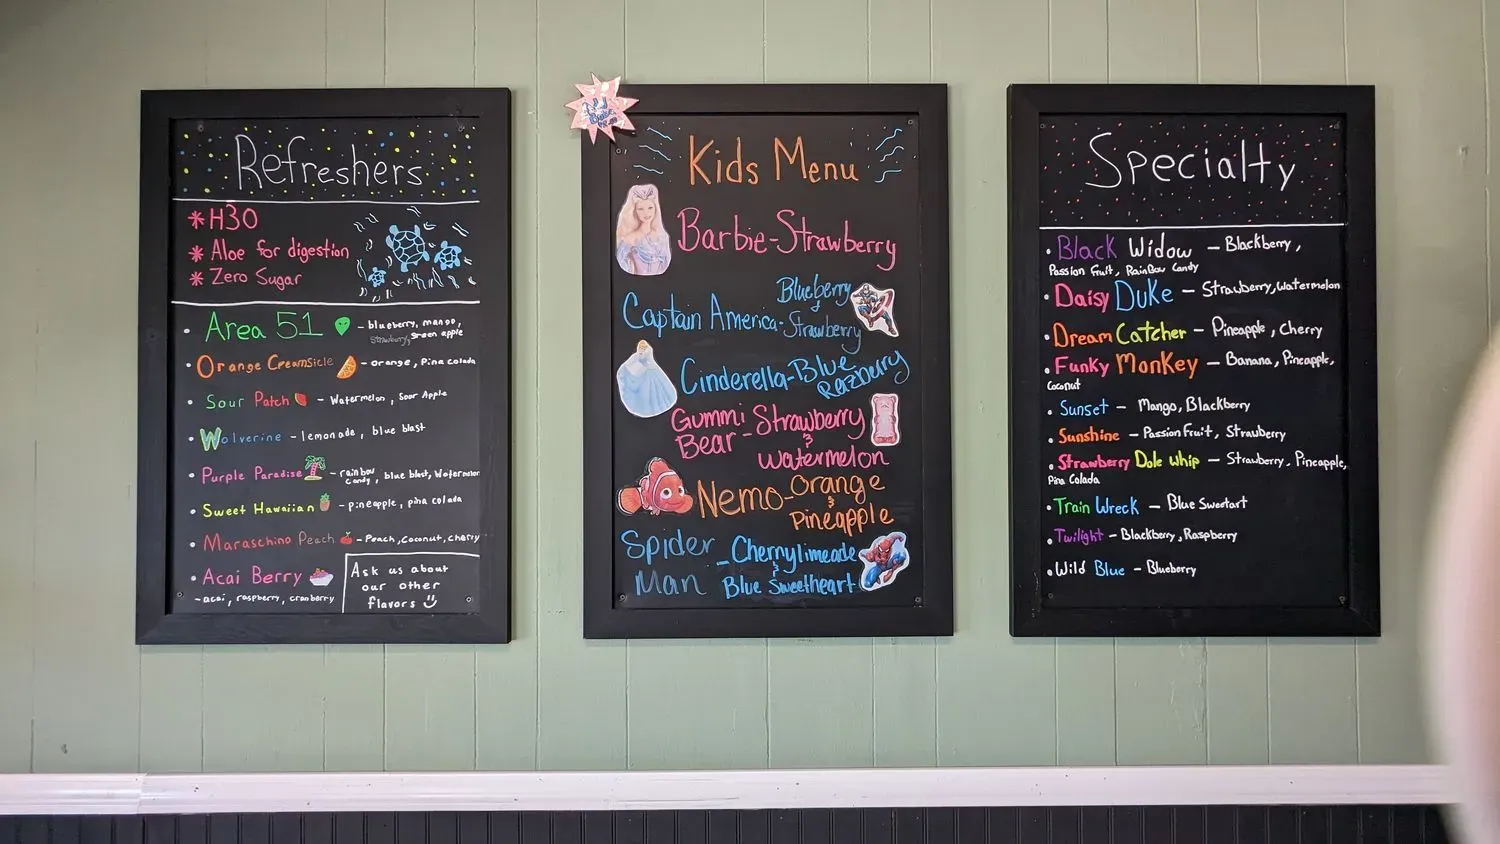 Refreshers
* H3O
* Aloe for digestion
* Zero Sugar
• Area 51 - blueberry, mango,
strawberry, green apple
• Orange Creamsicle - orange, Pina colada
• Sour Patch - Watermelon, Sour Apple
• Wolverine - lemonade, blue blast
• Purple Paradise - rainbow
candy, blue blast, Watermelon
• Sweet Hawaiian - pineapple, pina colada
• Maraschino Peach - Peach, coconut, cherry
• Acai Berry
- acai, raspberry, cranberry
Ask us about
our other
flavors
Kids Menu
Barbie - Strawberry
Captain America - Blueberry
& Strawberry
Cinderella - Blue
Razberry
Gummi Bear - Strawberry
&
Watermelon
Nemo - Orange
&
Pineapple
Spider Man - Cherrylimeade
&
Blue Sweetheart
Specialty
• Black Widow - Blackberry,
Passion Fruit, RainBow Candy
• Daisy Duke - Strawberry, Watermelon
• Dream Catcher - Pineapple, Cherry
• Funky Monkey - Banana, Pineapple,
Coconut
• Sunset - Mango, Blackberry
• Sunshine - Passion Fruit, Strawberry
• Strawberry Dole Whip - Strawberry, Pineapple,
Pina Colada
• Train Wreck - Blue Sweetart
• Twilight - Blackberry, Raspberry
• Wild Blue - Blueberry